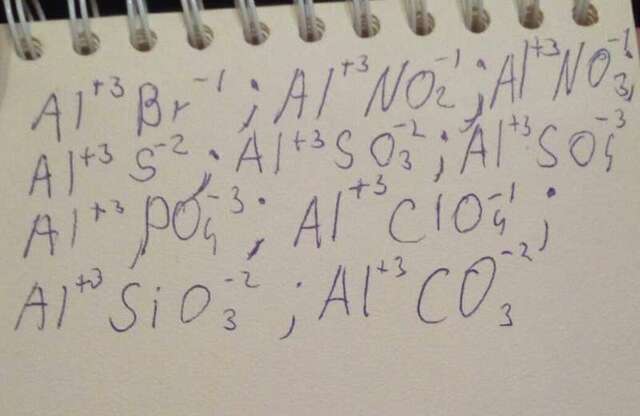 Al⁺³Br⁻¹; Al⁺³NO₂⁻¹; Al⁺³NO₃⁻¹;
Al⁺³S⁻²; Al⁺³SO₃⁻²; Al⁺³SO₄⁻³
Al⁺³PO₄⁻³; Al⁺³ClO₄⁻¹;
Al⁺³SiO₃⁻²; Al⁺³CO₃⁻²